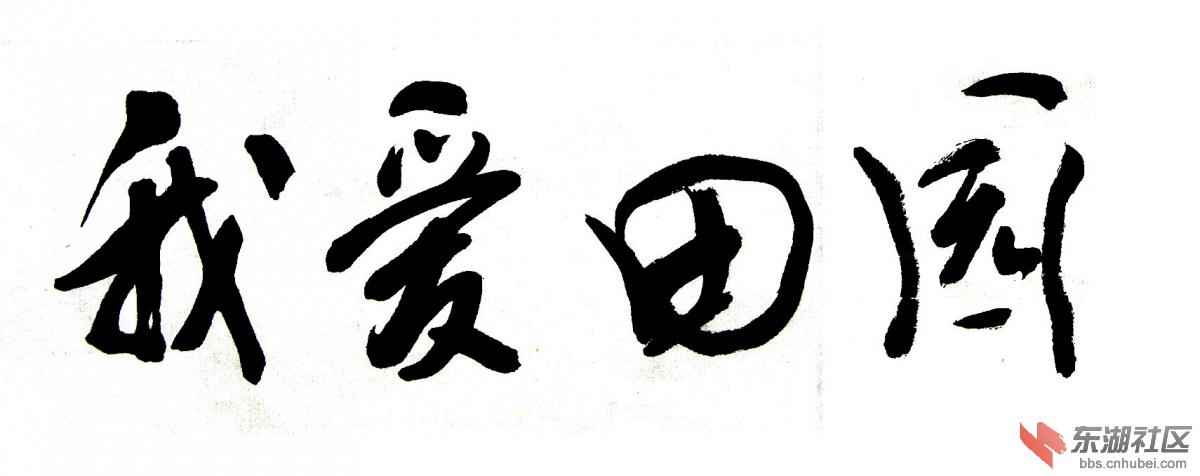 我爱田园
东湖社区
bbs.cnhubei.com